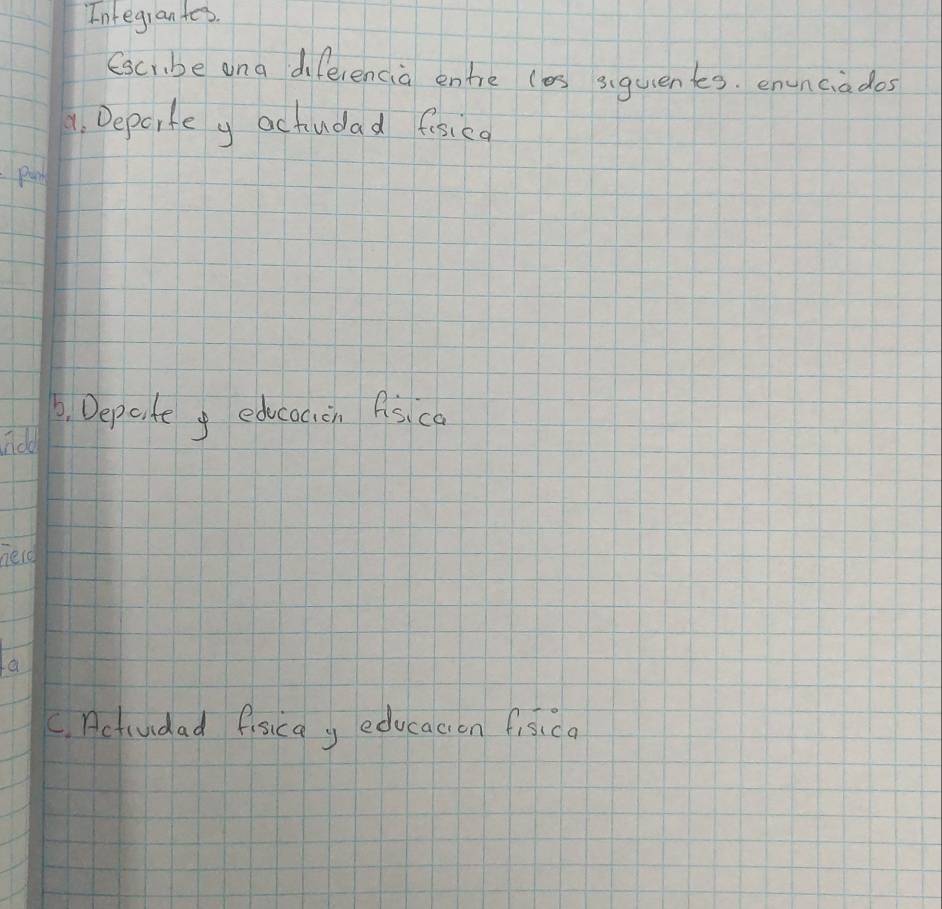 Integrantes.
Escribe una diferencia entre los siguientes. enunciados
a. Deporte y actividad fisica
b. Deporte y educación fisica
c. Actividad fisica y educacion fisica